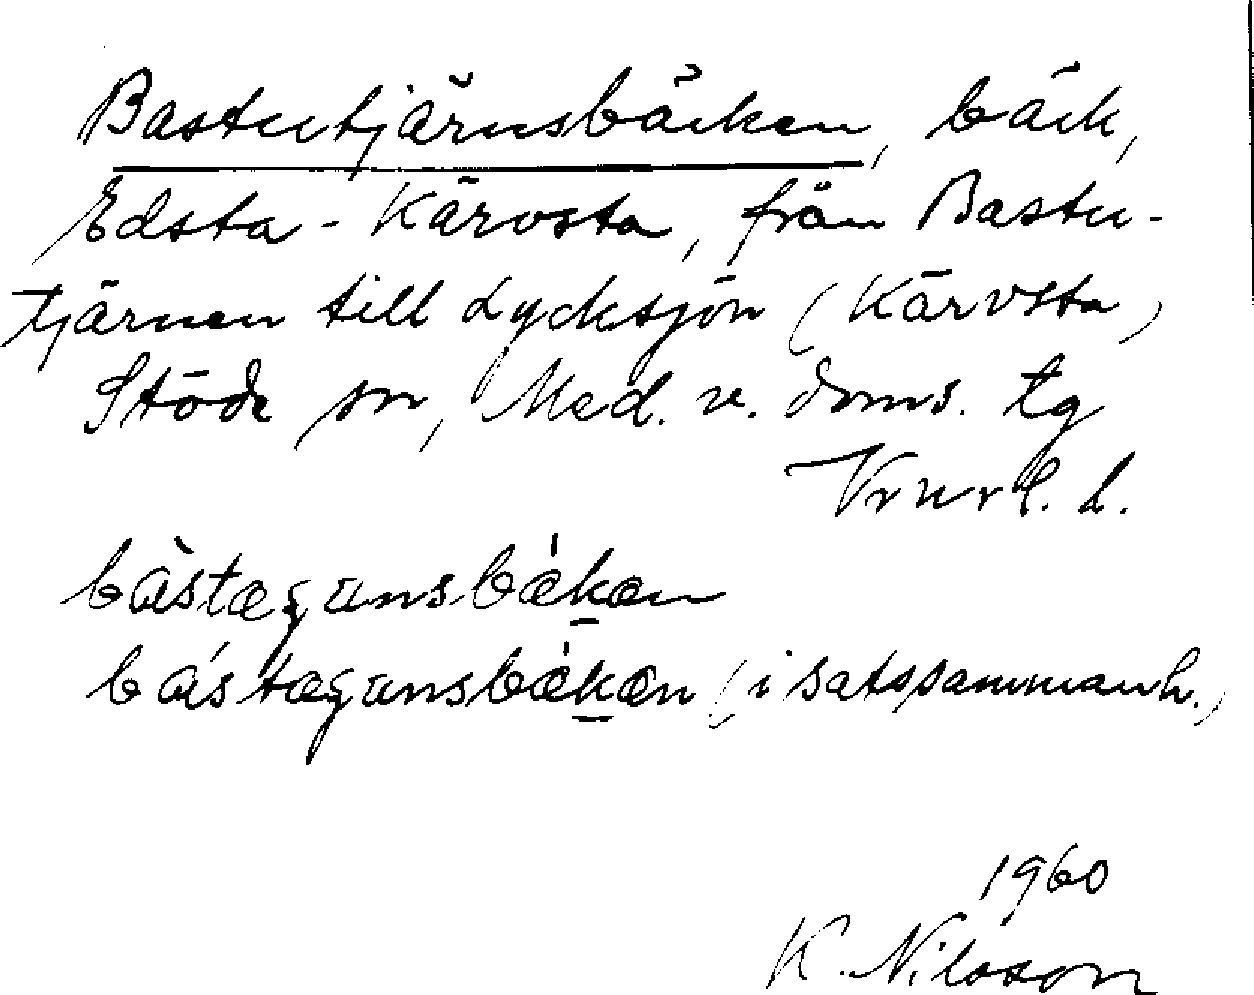 Bastutjärnsbäcken, bäck,
Edsta - Kärvsta, från Bastu-
tjärnen till Lycksjön (Kärvsta)
Stöde sn, Med. v. doms. tg
Vrnrl. L.
bàstægunsbækæn
bástægunsbækæn (i satssammanh.)
1960
K. Nilsson